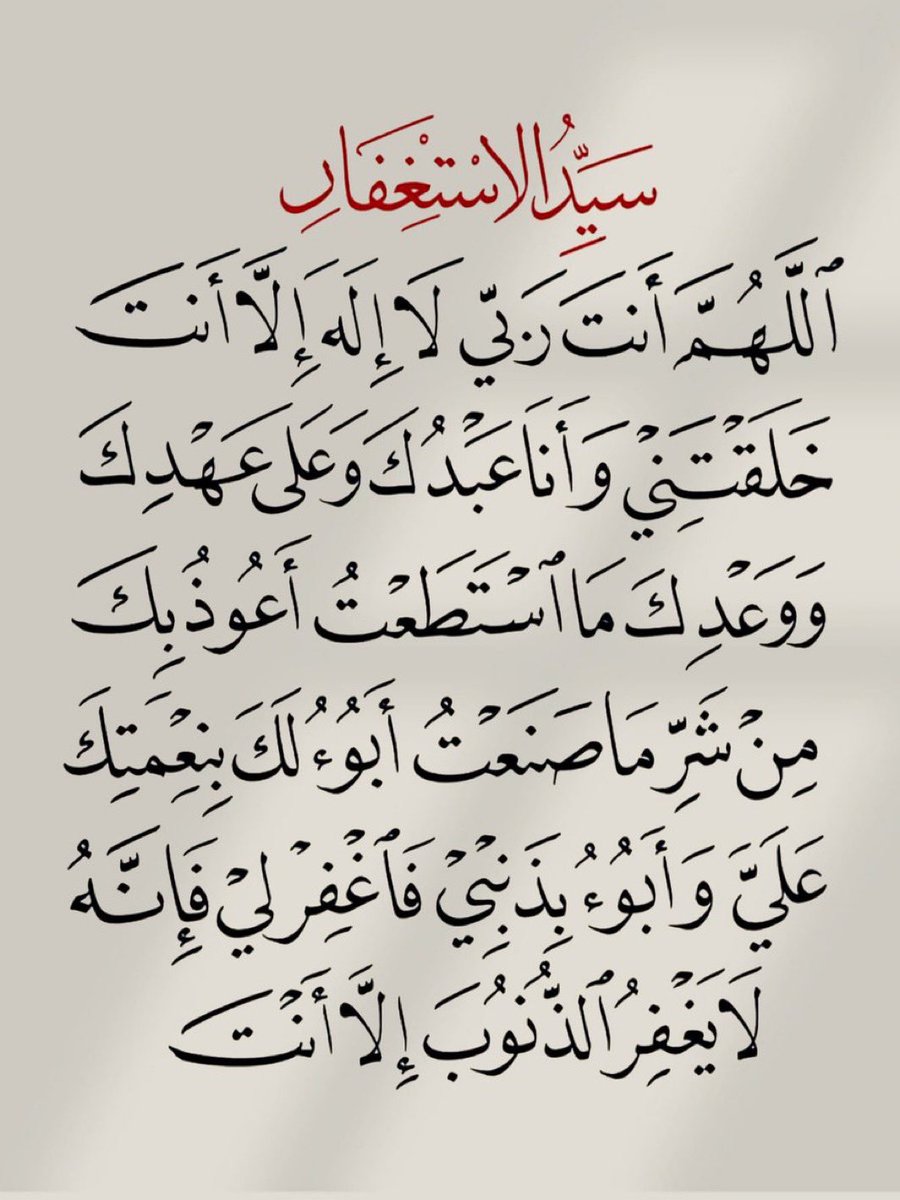 سَيِّدُ الاسْتِغْفَارِ
ٱللَّهُمَّ أَنتَ رَبِّي لَا إِلَهَ إِلَّا أَنتَ
خَلَقْتَنِيْ وَأَنَا عَبْدُكَ وَعَلَى عَهْدِكَ
وَوَعْدِكَ مَا ٱسْتَطَعْتُ أَعُوذُ بِكَ
مِنْ شَرِّ مَا صَنَعْتُ أَبُوُءُ لَكَ بِنِعْمَتِكَ
عَلَيَّ وَأَبُوُءُ بِذَنْبِيْ فَٱغْفِرْ لِيْ فَإِنَّهُ
لَا يَغْفِرُ ٱلذُّنُوبَ إِلَّا أَنْتَ